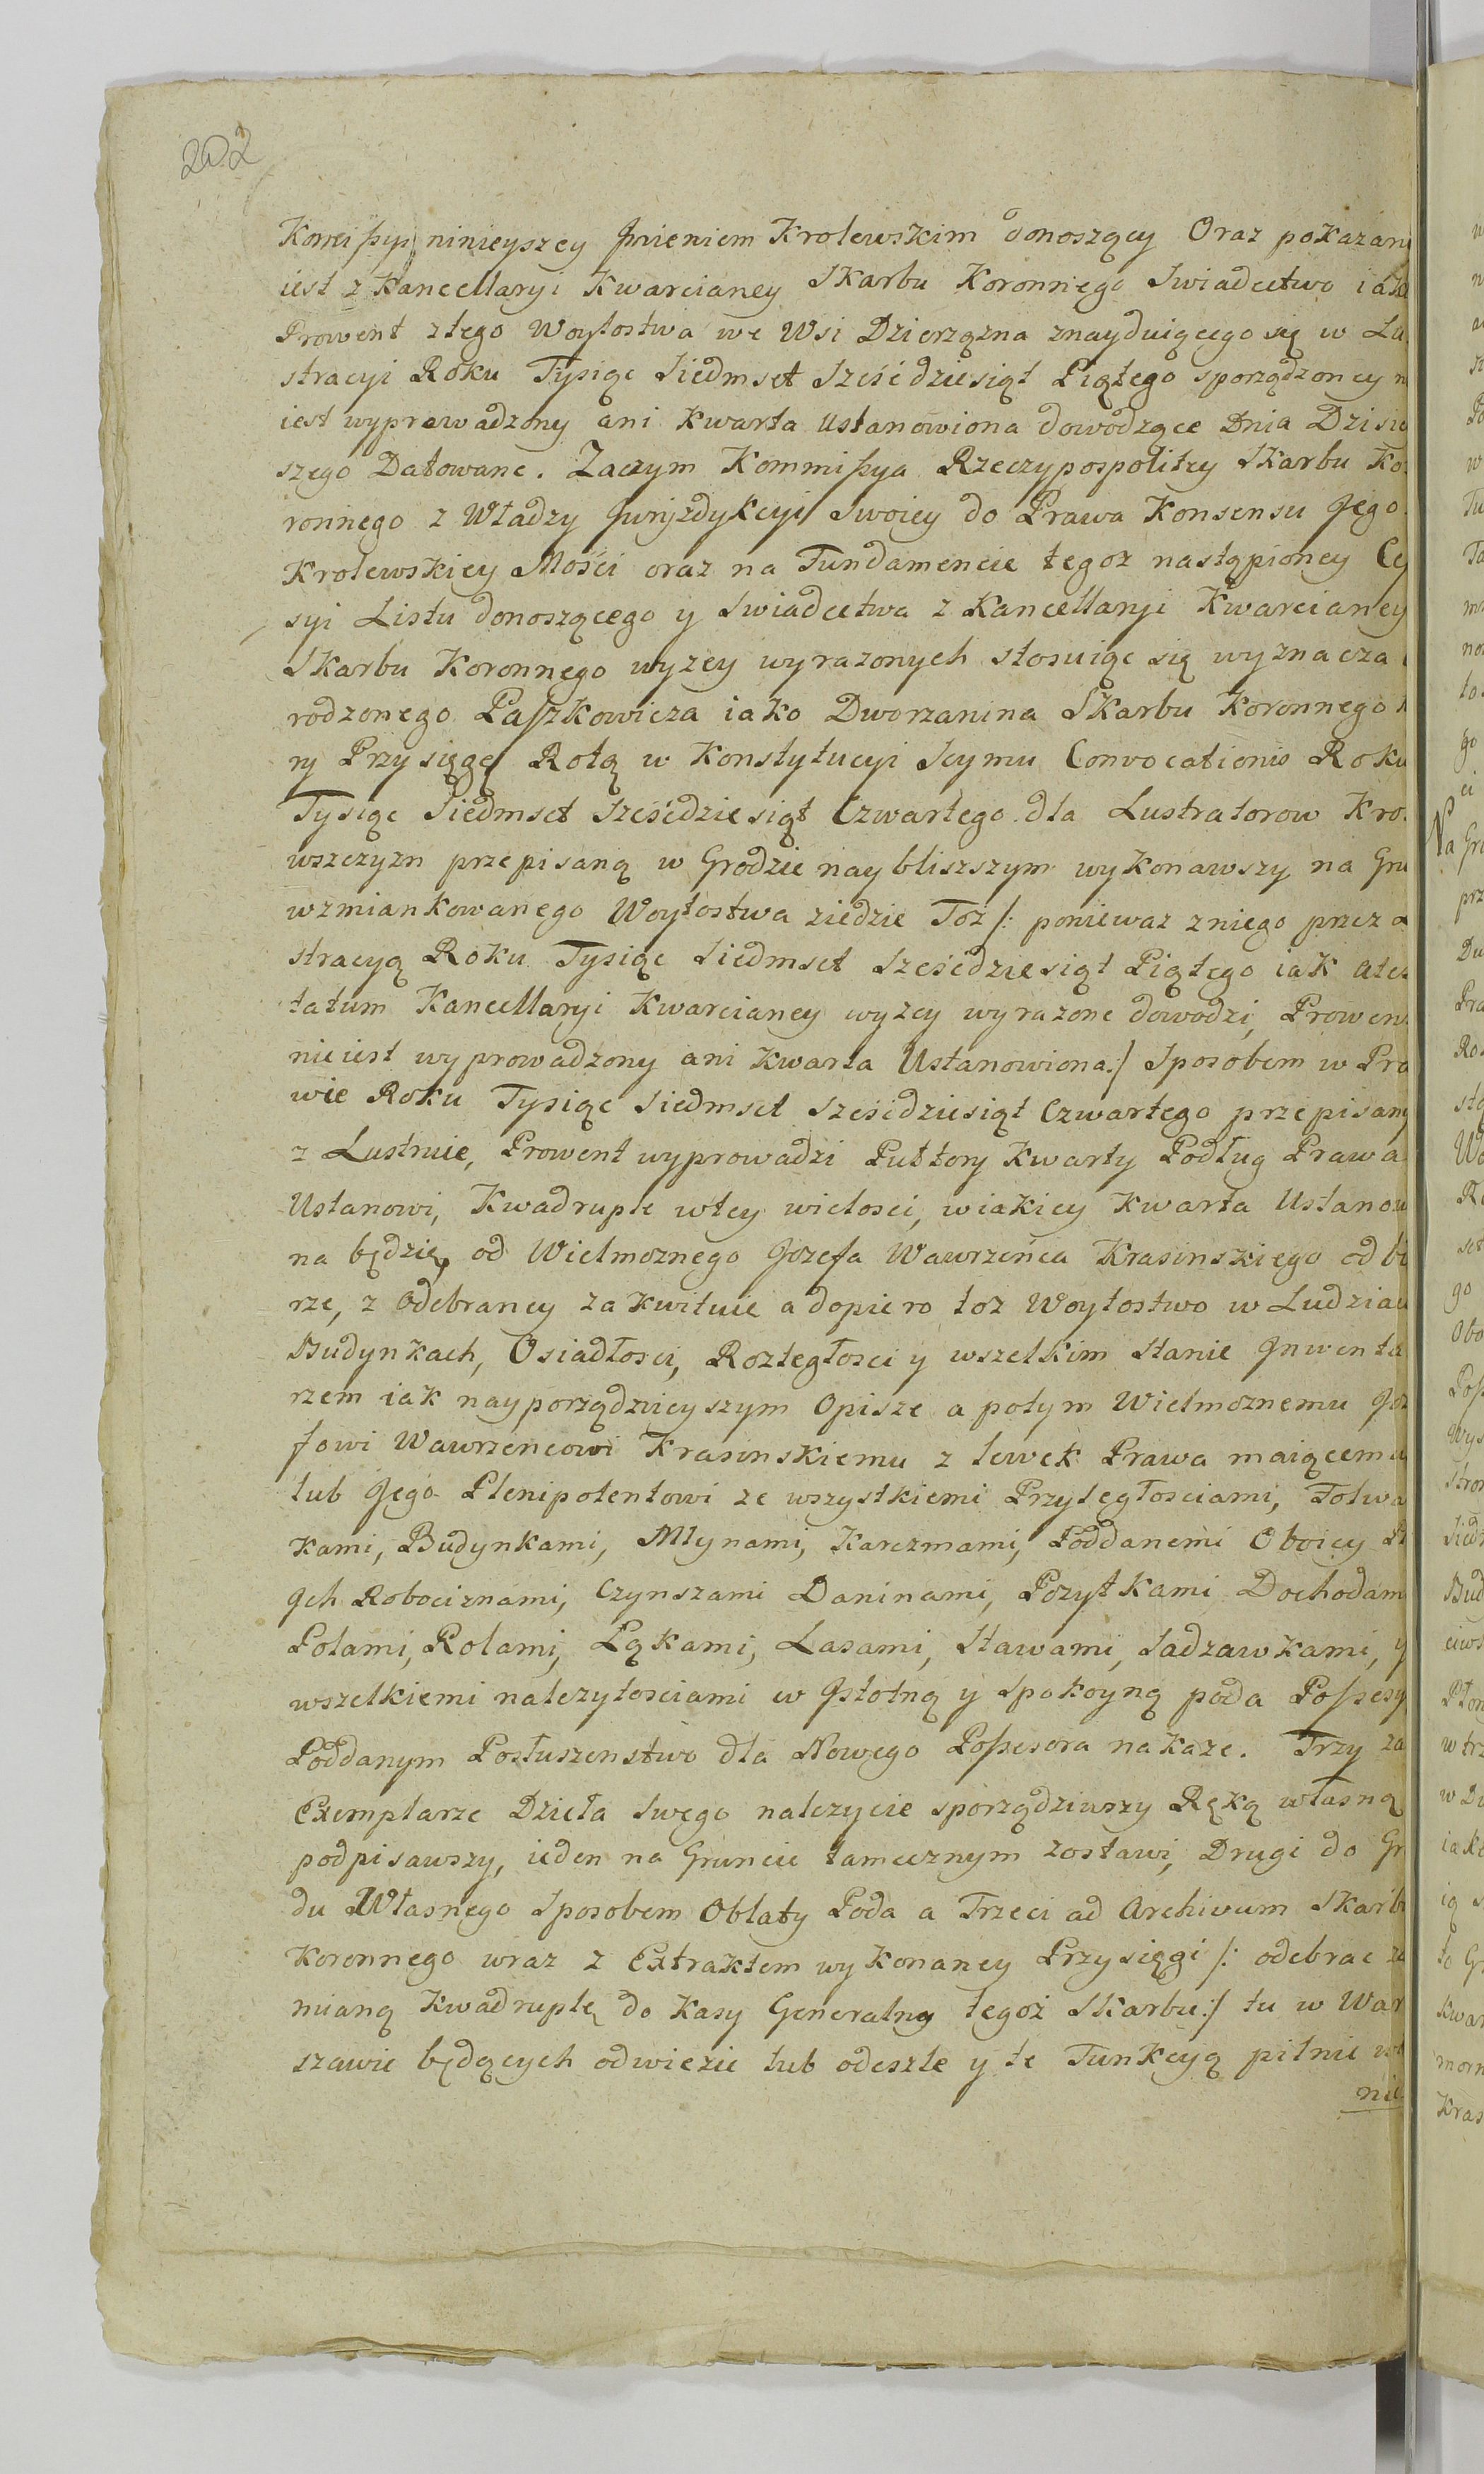 202
Kommissyi ninieyszey Jmieniem Krolewskim donoszący Oraz pokazan
iest z Kancellaryi Kwarcianey Skarbu Koronnego Swiadectwo iako
Prowent z tego Woytostwa we Wsi Dzierzązna znayduiącego się w Lu
stracyi Roku Tysiąc Siedmset Sześćdziesiąt Piątego sporządzoney n
iest wyprowadzony ani Kwarta Ustanowiona dowodzące Dnia Dzisie
szego Datowane. Zaczym Kommissya Rzeczypospolitey Skarbu Ko
ronnego z Władzy Juryzdykcyi Swoiey do Prawa Konsensu Jego
Krolewskiey Mości oraz na Fundamencie tegoz nastąpioney Ce
syi Listu donoszącego y Swiadectwa z Kancellaryi Kwarcianey
Skarbu Koronnego wyzey wyrazonych stosuiąc się wyznacza U
rodzonego Paszkowicza iako Dworzanina Skarbu Koronnego k
ry Przysięgę Rotą w Konstytucyi Seymu Convocationis Roku
Tysiąc Siedmset Sześćdziesiąt Czwartego dla Lustratorow Kro
wszczyzn przepisaną w Grodzie naybliszszym wykonawszy na Gru
wzmiankowanego Woytostwa ziedzie Toż /: poniewaz z niego przez Lu
stracyą Roku Tysiąc Siedmset Sześćdziesiąt Piątego iak Ates
tatum Kancellaryi Kwarcianey wyzey wyrazone dowodzi, Prowent
nie iest wyprowadzony ani Kwarta Ustanowiona :/ Sposobem w Pra
wie Roku Tysiąc Siedmset Sześćdziesiąt Czwartego przepisany
z Lustruie, Prowent wyprowadzi Puttory Kwarty Podług Prawa
Ustanowi, Kwadruple w tey wielosci, w iakiey Kwarta Ustanow
na będzie, od Wielmoznego Jozefa Wawrzeńca Krasinskiego odbi
rze, z Odebraney zakwituie a dopiero toz Woytostwo w Ludziach
Budynkach, Osiadłosci, Rozległosci y wszelkim Stanie Jnwenta
rzem iak nayporządnieyszym Opisze a potym Wielmoznemu Joz
fowi Wawrzencowi Krasinskiemu z tewek Prawa maiącemu
lub Jego Plenipotentowi ze wszystkiemi Przyległosciami, Folwa
kami, Budynkami, Młynami, Karczmami, Poddanemi Oboiey Pł
Jch Robociznami, Czynszami Daninami, Pozytkami, Dochodam
Polami, Rolami, Łąkami, Lasami, Stawami, Sadzawkami, y
wszelkiemi nalezytosciami w Jstotną y Spokoyną poda Possesy
Poddanym Posłuszenstwo dla Nowego Possesora nakaze. Trzy za
Exemplarze Dzieła Swego nalezycie sporządziwszy Ręką własną
podpisawszy, ieden na Gruncie tamecznym zostawi, Drugi do Gr
du Własnego Sposobem Oblaty Poda a Trzeci ad Archivum Skarb
Koronnego wraz z Extraktem wykonaney Przysięgi /: odebrac za
mianą Kwadruplę do Kasy Generalney tegoż Skarbu :/ tu w War
szawie będących odwiezie lub odeszle y te Funkcyą pilnie wy
nie